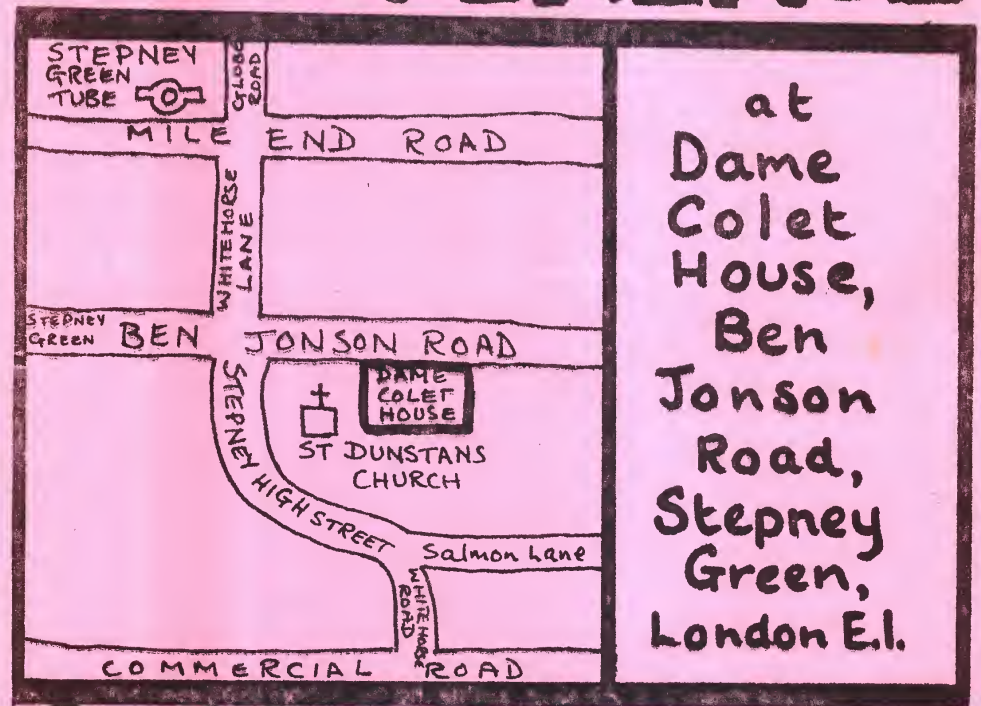 STEPNEY
GREEN
TUBE
GLOBE
ROAD
MILE END ROAD
WHITEHORSE
LANE
STEPNEY
GREEN
BEN JONSON ROAD
DAME
COLET
HOUSE
ST DUNSTANS
CHURCH
STEPNEY HIGH STREET
Salmon Lane
WHITEHORSE
ROAD
COMMERCIAL ROAD
at
Dame
Colet
House,
Ben
Jonson
Road,
Stepney
Green,
London E.1.